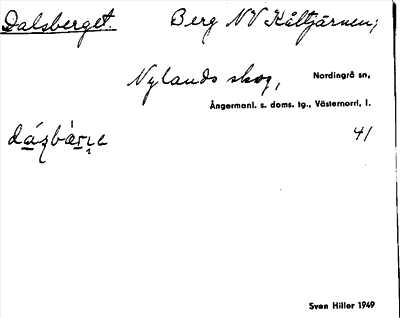 Dalsberget. Berg NV Kåltjärnen,
Nylands skog, Nordingrå sn,
Ångermanl. s. doms. tg., Västernorrl, l.
41
Sven Hiller 1949